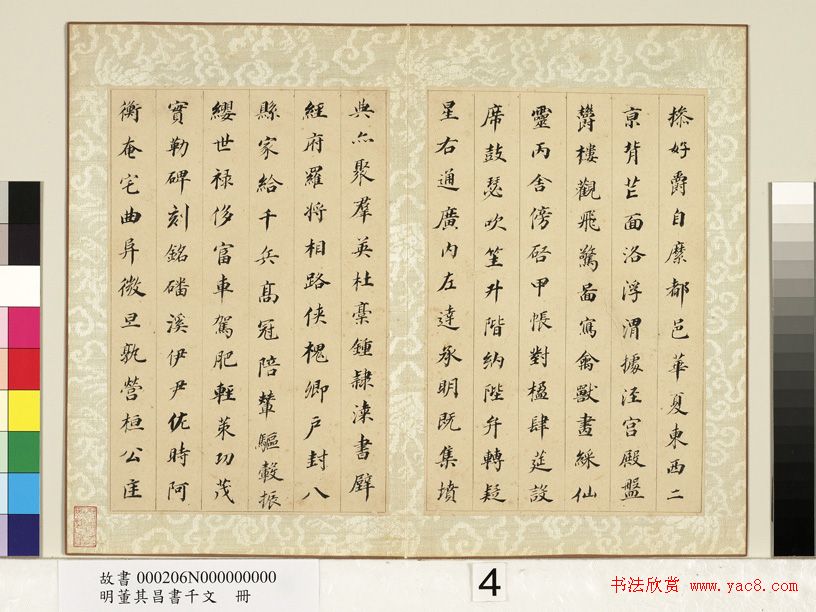 操好爵自縻都邑華夏東西二
京背芒面洛浮渭據涇宮殿盤
鬱樓觀飛驚圖寫禽獸畫綵仙
靈丙舍傍啓甲帳對楹肆筵設
席鼓瑟吹笙升階納陛弁轉疑
星右通廣內左達承明既集墳
典亦聚羣英杜稾鍾隸漆書壁
經府羅將相路俠槐卿戶封八
縣家給千兵高冠陪輦驅轂振
纓世祿侈富車駕肥輕策功茂
實勒碑刻銘磻溪伊尹佐時阿
衡奄宅曲阜微旦孰營桓公匡
故書 000206N000000000
明董其昌書千文 冊
4
书法欣赏 www.yac8.com